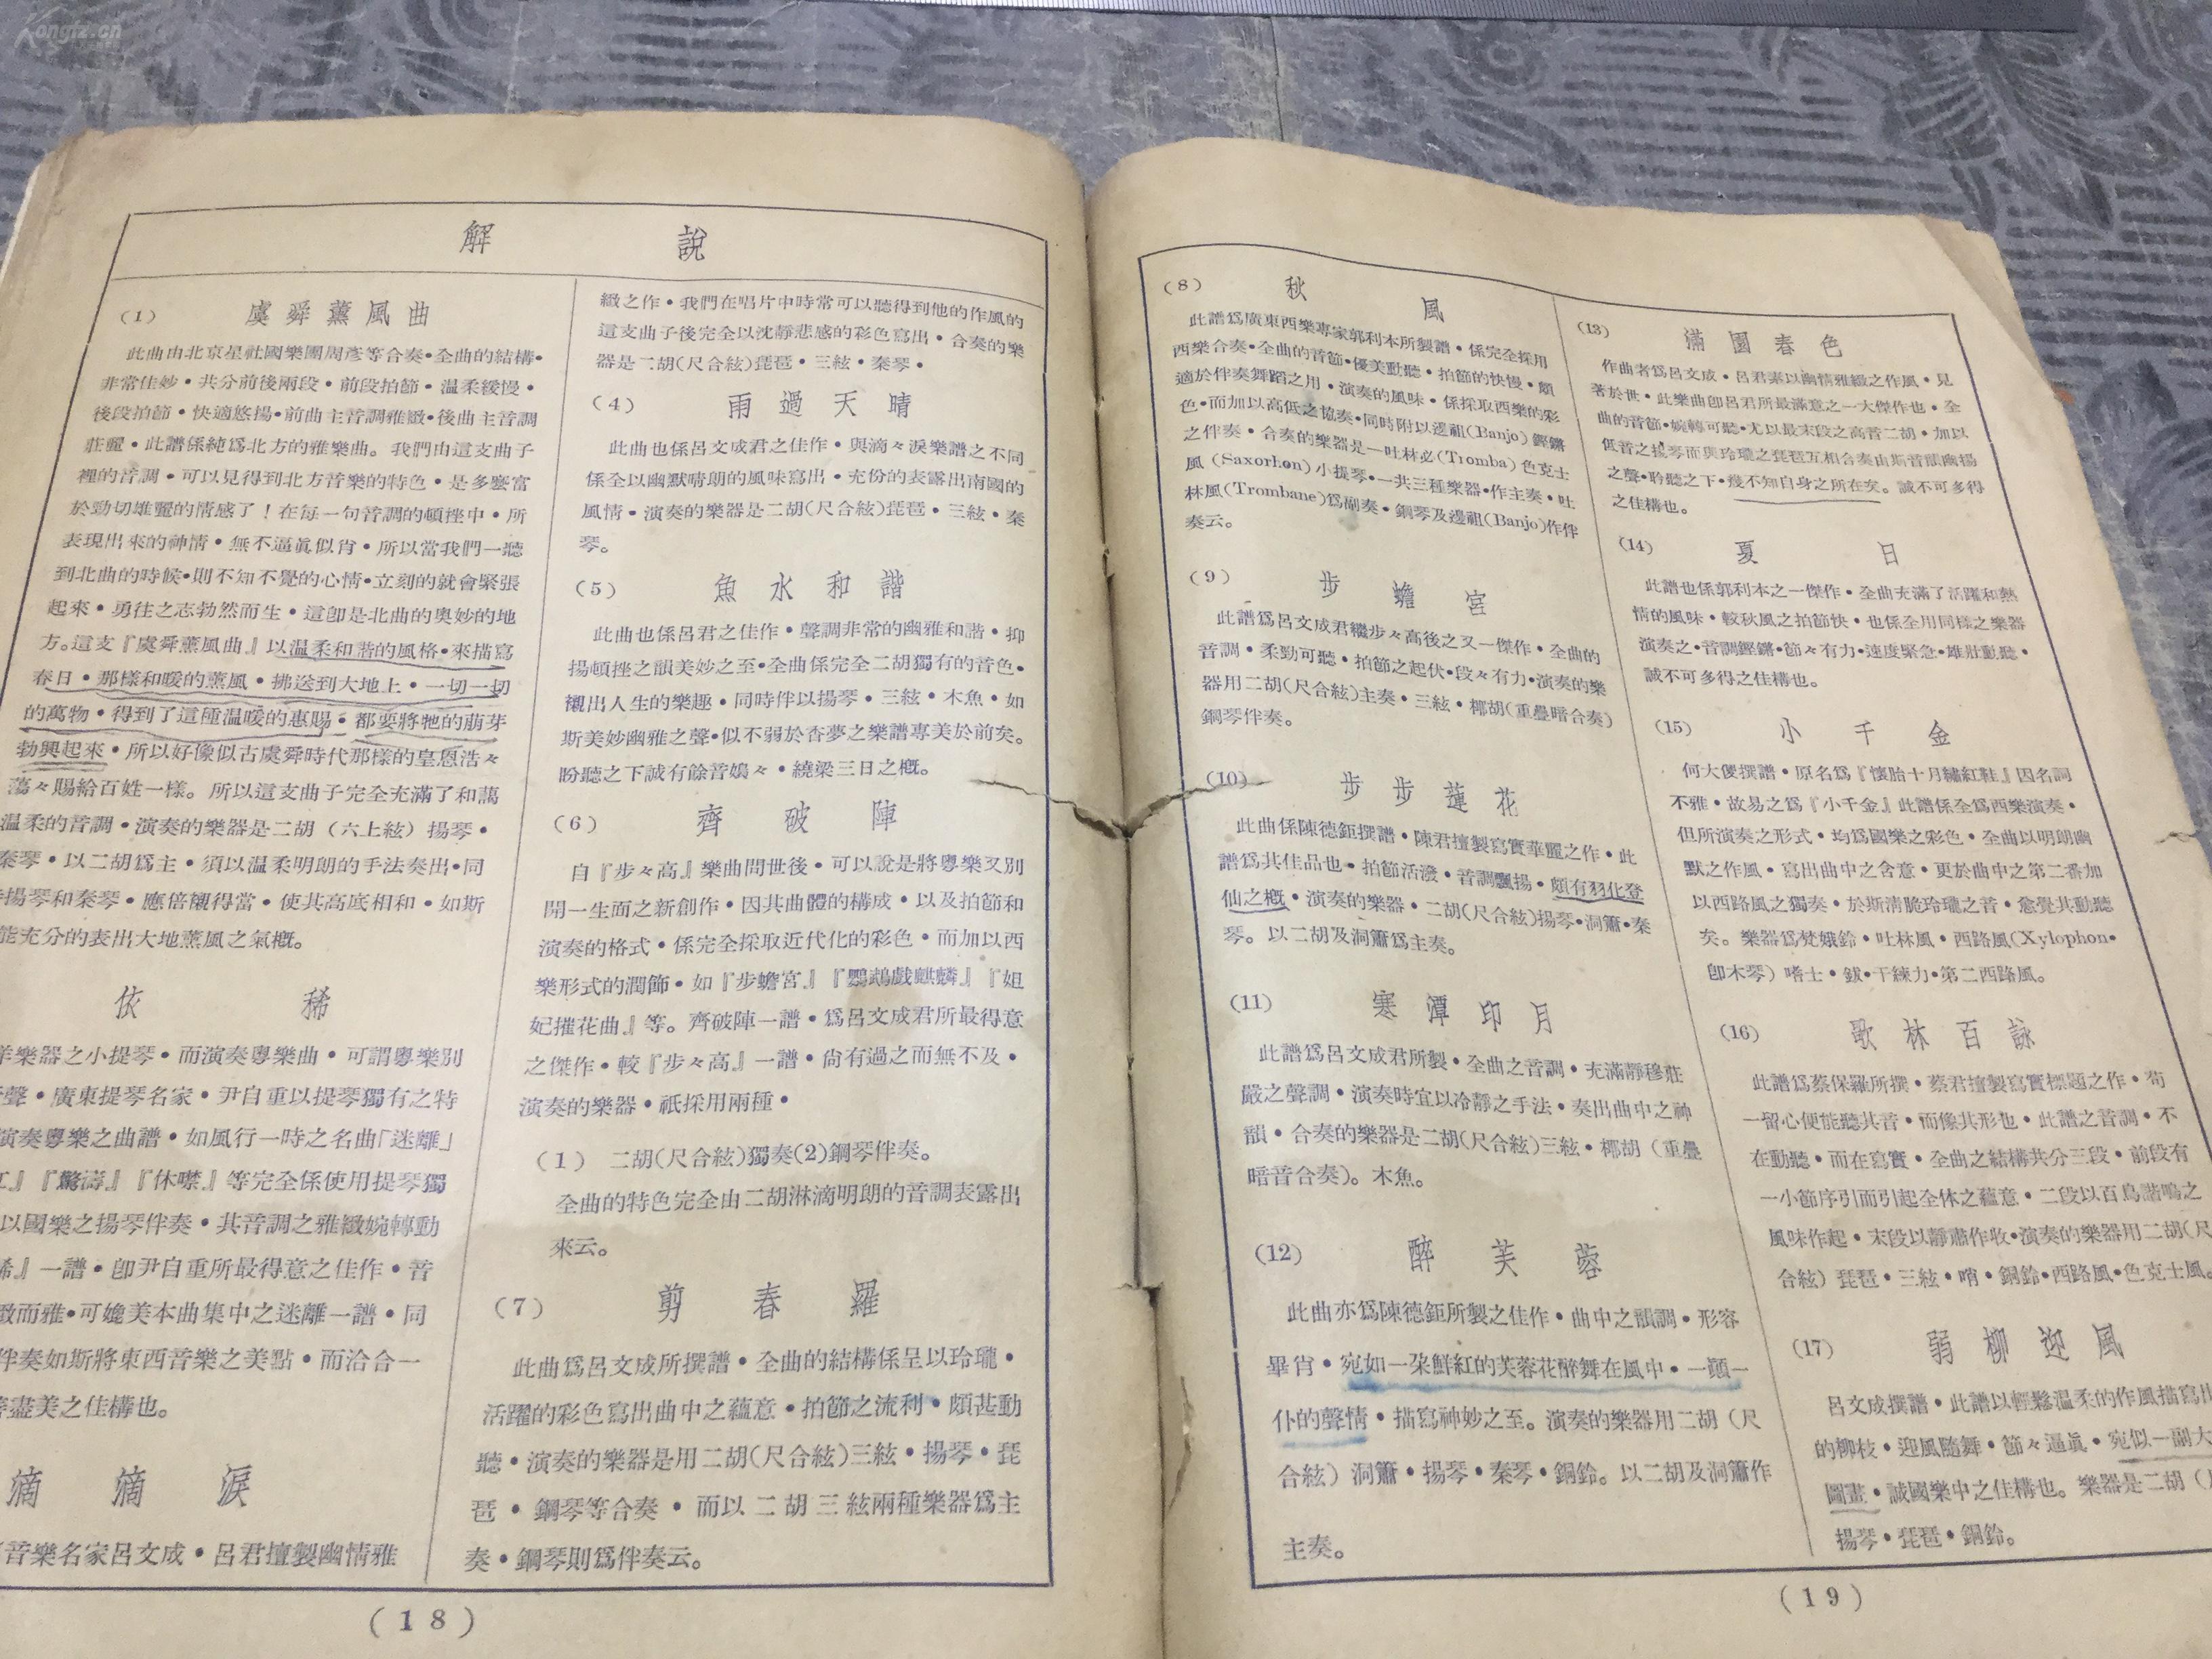 解說
(1) 虞舜薰風曲
此曲由北京星社國樂團周彥等合奏•全曲的結構•
非常佳妙•共分前後兩段•前段拍節•温柔緩慢•
後段拍節•快適悠揚•前曲主音調雅緻•後曲主音調
莊麗•此譜係純爲北方的雅樂曲。我們由這支曲子
裡的音調•可以見得到北方音樂的特色•是多麼富
於勁切雄麗的情感了！在每一句音調的頓挫中•所
表現出來的神情•無不逼眞似肖•所以當我們一聽
到北曲的時候•則不知不覺的心情•立刻的就會緊張
起來•勇往之志勃然而生•這卽是北曲的奧妙的地
方。這支『虞舜薰風曲』以温柔和諧的風格•來描寫
春日•那樣和暖的薰風•拂送到大地上•一切一切
的萬物•得到了這種温暖的惠賜•都要將牠的萠芽
勃興起來•所以好像似古虞舜時代那樣的皇恩浩々
蕩々賜給百姓一樣。所以這支曲子完全充滿了和藹
温柔的音調•演奏的樂器是二胡（六上絃）揚琴•
秦琴•以二胡爲主•須以温柔明朗的手法奏出•同
揚琴和秦琴•應倍襯得當•使其高底相和•如斯
能充分的表出大地薰風之氣概。
依稀
洋樂器之小提琴•而演奏粵樂曲•可謂粵樂別
聲•廣東提琴名家•尹自重以提琴獨有之特
演奏粵樂之曲譜•如風行一時之名曲「迷離」
』『驚濤』『休噤』等完全係使用提琴獨
以國樂之揚琴伴奏•其音調之雅緻婉轉動
稀』一譜•卽尹自重所最得意之佳作•音
緻而雅•可媲美本曲集中之迷離一譜•同
伴奏如斯將東西音樂之美點•而洽合一
盡美之佳構也。
滴滴淚
音樂名家呂文成•呂君擅製幽情雅
緻之作•我們在唱片中時常可以聽得到他的作風的
這支曲子後完全以沈靜悲感的彩色寫出•合奏的樂
器是二胡(尺合絃)琵琶•三絃•秦琴•
(4) 雨過天晴
此曲也係呂文成君之佳作•與滴々淚樂譜之不同
係全以幽默晴朗的風味寫出•充份的表露出南國的
風情•演奏的樂器是二胡(尺合絃)琵琶•三絃•秦
琴。
(5) 魚水和諧
此曲也係呂君之佳作•聲調非常的幽雅和諧•抑
揚頓挫之韻美妙之至•全曲係完全二胡獨有的音色•
襯出人生的樂趣•同時伴以揚琴•三絃•木魚•如
斯美妙幽雅之聲•似不弱於香夢之樂譜專美於前矣。
盼聽之下誠有餘音嬝々•繞梁三日之概。
(6) 齊破陣
自『步々高』樂曲問世後•可以說是將粵樂又別
開一生面之新創作•因其曲體的構成•以及拍節和
演奏的格式•係完全採取近代化的彩色•而加以西
樂形式的潤飾•如『步蟾宮』『鸚鵡戲麒麟』『妲
妃摧花曲』等。齊破陣一譜•爲呂文成君所最得意
之傑作•較『步々高』一譜•尙有過之而無不及•
演奏的樂器•祇採用兩種•
(1) 二胡(尺合絃)獨奏(2)鋼琴伴奏。
全曲的特色完全由二胡淋滴明朗的音調表露出
來云。
(7) 剪春羅
此曲爲呂文成所撰譜•全曲的結構係呈以玲瓏•
活躍的彩色寫出曲中之蘊意•拍節之流利•頗甚動
聽•演奏的樂器是用二胡(尺合絃)三絃•揚琴•琵
琶•鋼琴等合奏•而以二胡三絃兩種樂器爲主
奏•鋼琴則爲伴奏云。
(18)
(8) 秋風
此譜爲廣東西樂專家郭利本所製譜•係完全採用
西樂合奏•全曲的音節•優美動聽•拍節的快慢•頗
適於伴奏舞蹈之用•演奏的風味•係採取西樂的彩
色•而加以高低之協奏•同時附以邊祖(Banjo)鏗鏘
之伴奏•合奏的樂器是—吐林必(Tromba)色克士
風(Saxorhon)小提琴•一共三種樂器•作主奏•吐
林風(Trombane)爲副奏•鋼琴及邊祖(Banjo)作伴
奏云。
(9) 步蟾宮
此譜爲呂文成君繼步々高後之又一傑作•全曲的
音調•柔勁可聽•拍節之起伏•段々有力•演奏的樂
器用二胡(尺合絃)主奏•三絃•椰胡(重疊暗合奏)
鋼琴伴奏。
(10) 步步蓮花
此曲係陳德鉅撰譜•陳君擅製寫實華麗之作•此
譜爲其佳品也•拍節活潑•音調飄揚•頗有羽化登
仙之概•演奏的樂器•二胡(尺合絃)揚琴•洞簫•秦
琴。以二胡及洞簫爲主奏。
(11) 寒潭印月
此譜爲呂文成君所製•全曲之音調•充滿靜穆莊
嚴之聲調•演奏時宜以冷靜之手法•奏出曲中之神
韻•合奏的樂器是二胡(尺合絃)三絃•椰胡（重疊
暗音合奏）。木魚。
(12) 醉芙蓉
此曲亦爲陳德鉅所製之佳作•曲中之韻調•形容
畢肖•宛如一朶鮮紅的芙蓉花醉舞在風中•一顚一
仆的聲情•描寫神妙之至。演奏的樂器用二胡（尺
合絃）洞簫•揚琴•秦琴•銅鈴。以二胡及洞簫作
主奏。
(13) 滿園春色
作曲者爲呂文成•呂君素以幽情雅緻之作風•見
著於世•此樂曲卽呂君所最滿意之一大傑作也•全
曲的音節•婉轉可聽•尤以最末段之高音二胡•加以
低音之揚琴而與玲瓏之琵琶互相合奏由斯音韻幽揚
之聲•聆聽之下•幾不知自身之所在矣。誠不可多得
之佳構也。
(14) 夏日
此譜也係郭利本之一傑作•全曲充滿了活躍和熱
情的風味•較秋風之拍節快•也係全用同樣之樂器
演奏之•音調鏗鏘•節々有力•速度緊急•雄壯動聽•
誠不可多得之佳構也。
(15) 小千金
何大傻撰譜•原名爲『懷胎十月繡紅鞋』因名詞
不雅•故易之爲『小千金』此譜係全爲西樂演奏•
但所演奏之形式•均爲國樂之彩色•全曲以明朗幽
默之作風•寫出曲中之含意•更於曲中之第二番加
以西路風之獨奏•於斯淸脆玲瓏之音•愈覺其動聽
矣。樂器爲梵娥鈴•吐林風•西路風(Xylophon•
卽木琴）啫士•鈸•干練力•第二西路風。
(16) 歌林百詠
此譜爲蔡保羅所撰•蔡君擅製寫實標題之作•苟
一留心便能聽其音•而像其形也•此譜之音調•不
在動聽•而在寫實•全曲之結構共分三段•前段有
一小節序引而引起全体之蘊意•二段以百鳥諧鳴之
風味作起•末段以靜肅作收•演奏的樂器用二胡(尺
合絃）琵琶•三絃•哨•銅鈴•西路風•色克士風。
(17) 弱柳迎風
呂文成撰譜•此譜以輕鬆温柔的作風描寫出
的柳枝•迎風隨舞•節々逼眞•宛似一副大
圖畫•誠國樂中之佳構也。樂器是二胡（
揚琴•琵琶•銅鈴。
(19)